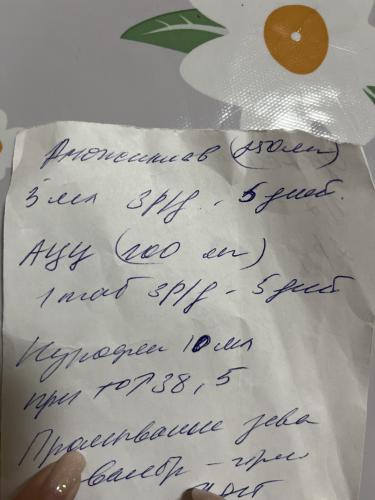 Амоксиклав (250 мг)
5 мл 3 р/д - 5 дней.
АЦЦ (200 мг)
1 таб 3 р/д - 5 дней
Нурофен 10 мл
при t от 38,5
Промывание зева